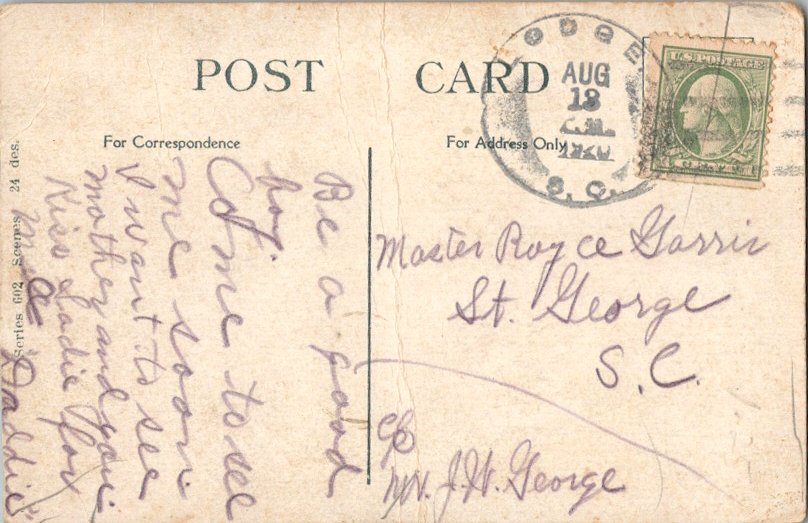 POST CARD
For Correspondence
For Address Only
AUG
13
S. C.
U.S. POSTAGE
Series 602 Scenes 24 des.
Be a good
boy.
Come to see
me soon
I want to see
mother and you.
Kiss Sadie for
me
Daddie
Master Royce Garris
St. George
S.C.
c/o
Mr. J.H. George